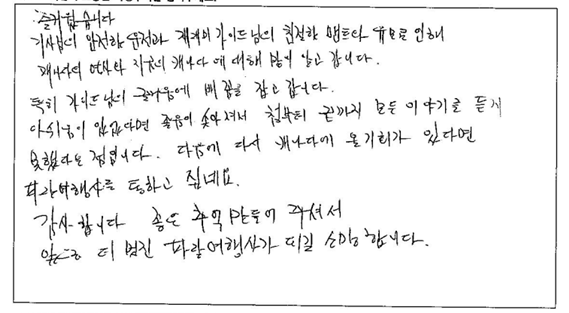 즐거웠습니다
기사님의 안전한 운전과 가이드님의 친절한 멘트와 유모로 인해
캐나다의 역사와 지금의 캐나다에 대해 많이 알고 갑니다.
특히 가이드님의 유머에 배꼽을 잡고 갑니다.
아쉬움이 있었다면 졸음이 쏟아져서 첨부터 끝까지 모든 이야기를 듣지
못했다는 점입니다. 다음에 다시 캐나다에 올 기회가 있다면
파란여행사를 통하고 싶네요.
감사합니다 좋은 추억 만들어 주셔서
앞으로 더 멋진 파란여행사가 되길 소망합니다.